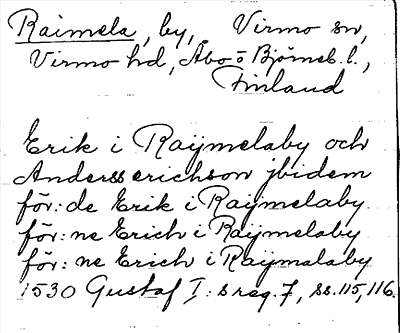 Raimela, by, Virmo sn,
Virmo hd, Åbo o Björneb. l.,
Finland
Erik i Raÿmelaby och
Anderss erichson jbidem
för: de Erik i Raÿmelaby
för: ne Erich i Raÿmelaby
för: ne Erich i Raÿmalaby
1530 Gustaf I: s reg. 7, ss. 115, 116.